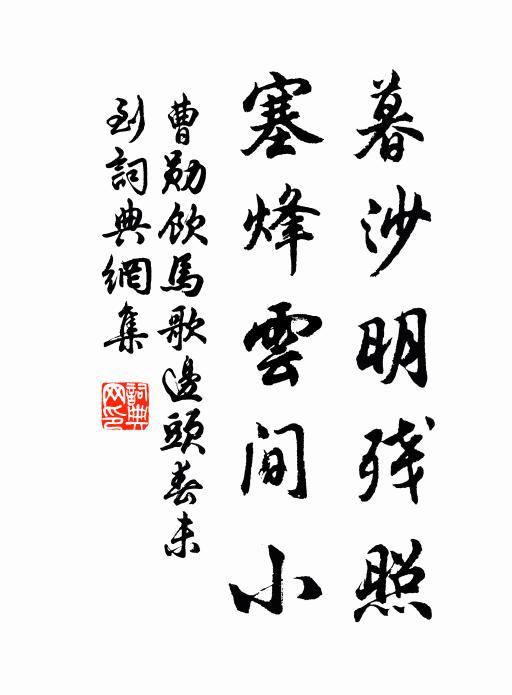 暮沙明残照
塞烽雲间小
曹勛飲馬歌邊頭春未
到詞典網集
詞典网印